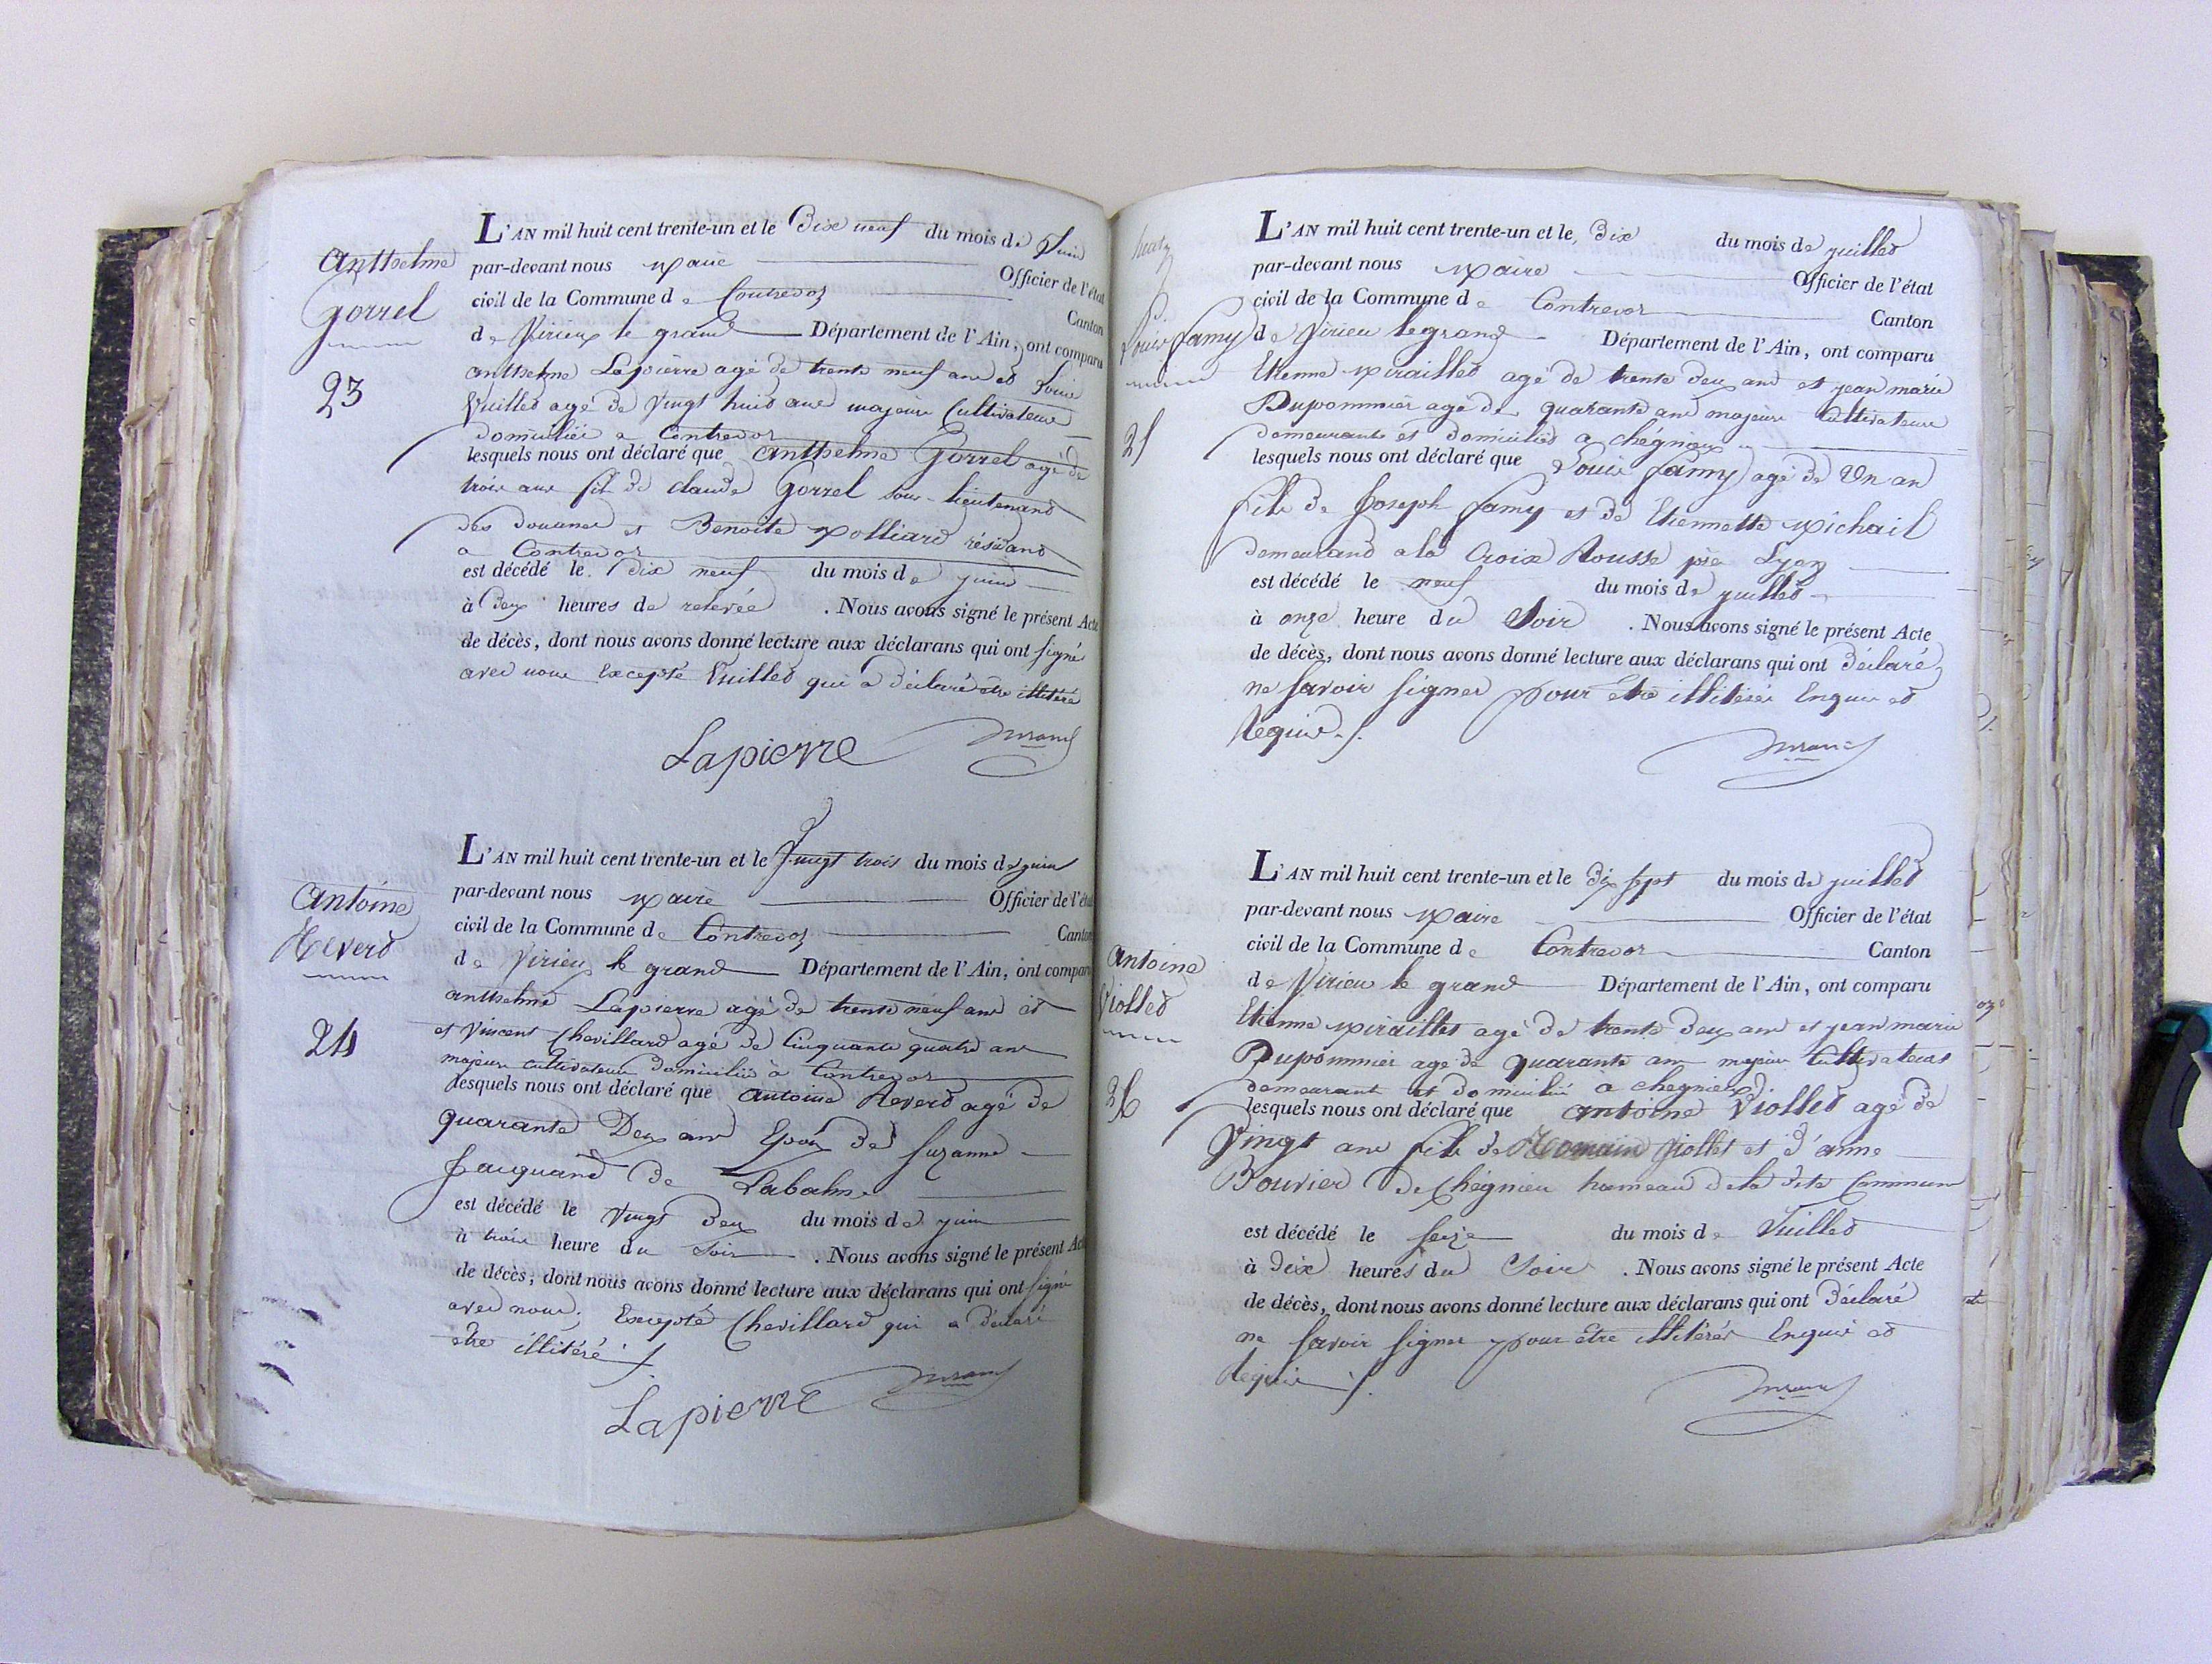 Antthelme
Gorrel
23
L'AN mil huit cent trente-un et le Dix neuf du mois de Juin
par-devant nous Maire Officier de l'état
civil de la Commune de Contrevoz Canton
de Virieux le grand Département de l'Ain, ont comparu
antthelme Lapierre agé de trente neuf ans et Louis
Vuillet agé de Vingt huit ans majeurs Cultivateurs
domiciliés a Contrevoz
lesquels nous ont déclaré que Antthelme Gorrel agé de
trois ans fils de claude Gorrel sous-lieutenant
des douanes et Benoite Polliard résidant
a Contrevoz
est décédé le Dix neuf du mois de juin
à Deux heures de relevée . Nous avons signé le présent Acte
de décès, dont nous avons donné lecture aux déclarans qui ont signé
avec nous Excepté Vuillet qui a Déclaré être illitéré
Lapierre Durand
Antoine
Reverd
24
L'AN mil huit cent trente-un et le Vingt trois du mois de juin
par-devant nous Maire Officier de l'état
civil de la Commune de Contrevoz Canton
de Virieux le grand Département de l'Ain, ont comparu
antthelme Lapierre agé de trente neuf ans et
et Vincent Chevillard agé de Cinquante quatre ans
majeurs cultivateurs Domiciliés à Contrevoz
lesquels nous ont déclaré que Antoine Reverd agé de
quarante Deux ans Epoux de Suzanne
Jacquand de Labalme
est décédé le Vingt Deux du mois de juin
à trois heure du Soir . Nous avons signé le présent Acte
de décès, dont nous avons donné lecture aux déclarans qui ont signé
avec nous, Excepté Chevillard qui a Déclaré
être illitéré
Lapierre Durand
Louis Famy
25
L'AN mil huit cent trente-un et le Dix du mois de juillet
par-devant nous Maire Officier de l'état
civil de la Commune de Contrevoz Canton
de Virieu legrand Département de l'Ain, ont comparu
Etienne Miraillet agé de trente deux ans et jean marie
Dupommier agé de quarante ans majeurs Cultivateurs
demeurants et domiciliés a chégnieux
lesquels nous ont déclaré que Louis Famy agé de Un an
fils de Joseph Famy et de Etiennette Michail
demeurand a la Croix Rousse près Lyon
est décédé le neuf du mois de juillet
à onze heure du Soir . Nous avons signé le présent Acte
de décès, dont nous avons donné lecture aux déclarans qui ont Déclaré
ne savoir signer pour être illitérés Enquis et
Requis
Durand
Antoine
Viollet
26
L'AN mil huit cent trente-un et le Dix sept du mois de juillet
par-devant nous Maire Officier de l'état
civil de la Commune de Contrevoz Canton
de Virieu le grand Département de l'Ain, ont comparu
Etienne Miraillet agé de trente deux ans et jean marie
Dupommier agé de quarante ans majeurs Cultivateurs
demeurant et domiciliés a chegnieux
lesquels nous ont déclaré que antoine Viollet agé de
Vingt ans fils de Romain Viollet et d'anne
Bouvier de Chégnieu hameau de la dite Commune
est décédé le seize du mois de Juillet
à Dix heures du Soir . Nous avons signé le présent Acte
de décès, dont nous avons donné lecture aux déclarans qui ont Déclaré
ne savoir signer pour être illitérés Enquis et
Requis
Durand